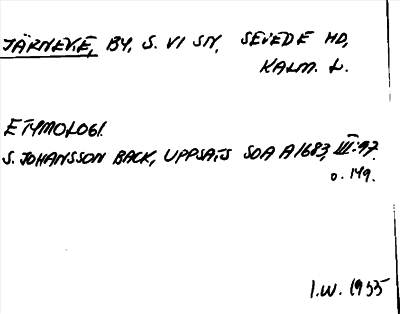 JÄRNEVE, BY, S. VI SN, SEVEDE HD,
KALM. L.
ETYMOLOGI.
S. JOHANSSON BACK, UPPSATS SOA A1683, III:97
o. 149.
I.W. 1955